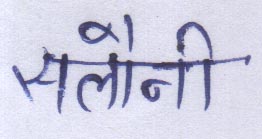 सलौनी